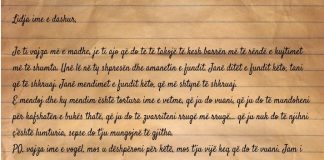 Lidja ime e dashur,
Je ti vajza më e madhe, je ti ajo që do të të takojë të kesh barrën më të rëndë e kujtimet
më të shumta. Unë lë në ty shpresën dhe amanetin e fundit. Janë ditët e fundit këto, tani
që të shkruaj. Janë mendimet e fundit këto, që më shtynë të shkruaj.
E mendoj dhe ky mendim është tortura ime e vetme, që ju do vuani, që ju do të mundoheni
për kafshatën e bukës thatë, që ju do të zvarriteni rrugë më rrugë... që ju nuk do të njihni
ç'është lumturia, sepse do t'ju mungojnë të gjitha.
PO, vajza ime e vogël, mos u dëshpëroni për këtë, mos t'ju vijë keq që do të vuani. Jam i